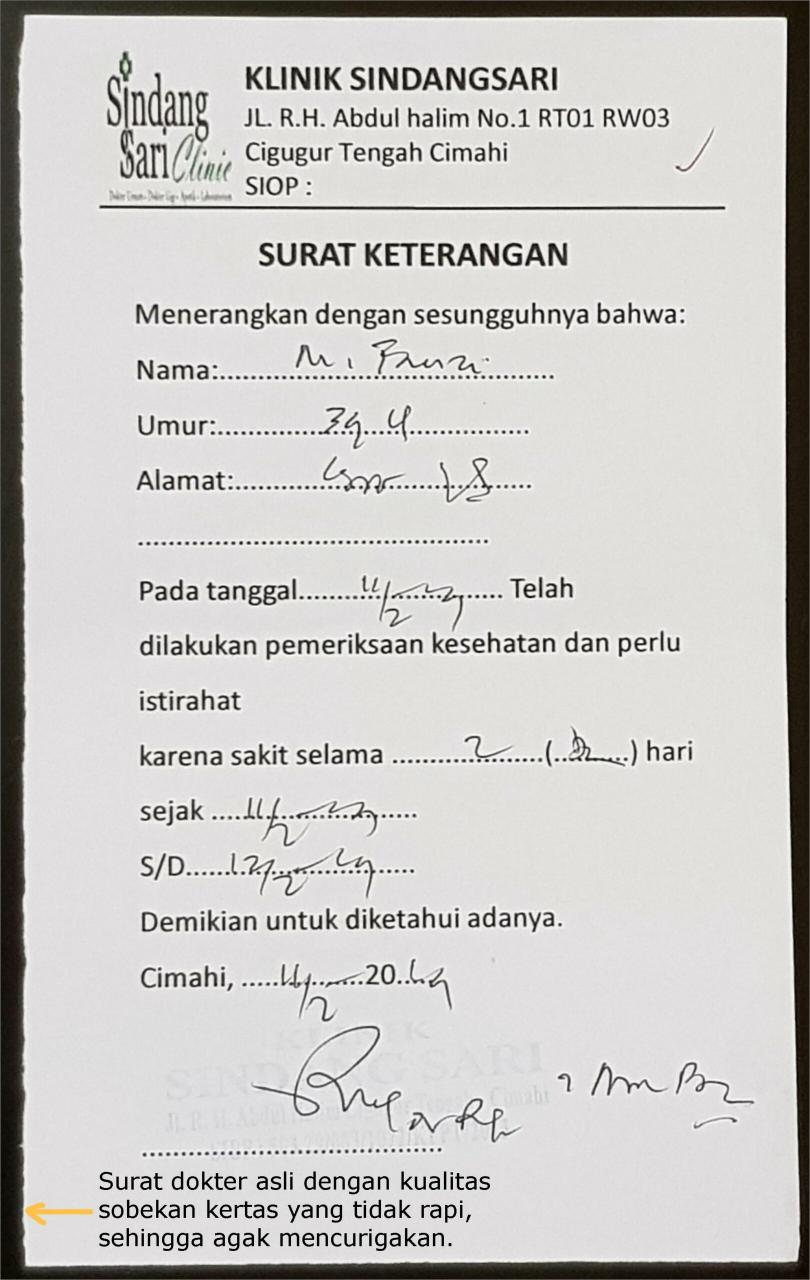 Sindang
Sari Clinic
KLINIK SINDANGSARI
JL. R.H. Abdul halim No.1 RT01 RW03
Cigugur Tengah Cimahi
SIOP :
SURAT KETERANGAN
Menerangkan dengan sesungguhnya bahwa:
Nama:.......... M. Fauzi ..........
Umur:..........
Alamat:..........
..........
Pada tanggal.......... 11/2 .......... Telah
dilakukan pemeriksaan kesehatan dan perlu
istirahat
karena sakit selama .......... 2 ..........(..........) hari
sejak .... 11/2 ..........
S/D...... 12/2 ..........
Demikian untuk diketahui adanya.
Cimahi, ..... 11/2 .....20..19
KLINIK
SINDANG SARI
..........
Surat dokter asli dengan kualitas
sobekan kertas yang tidak rapi,
sehingga agak mencurigakan.